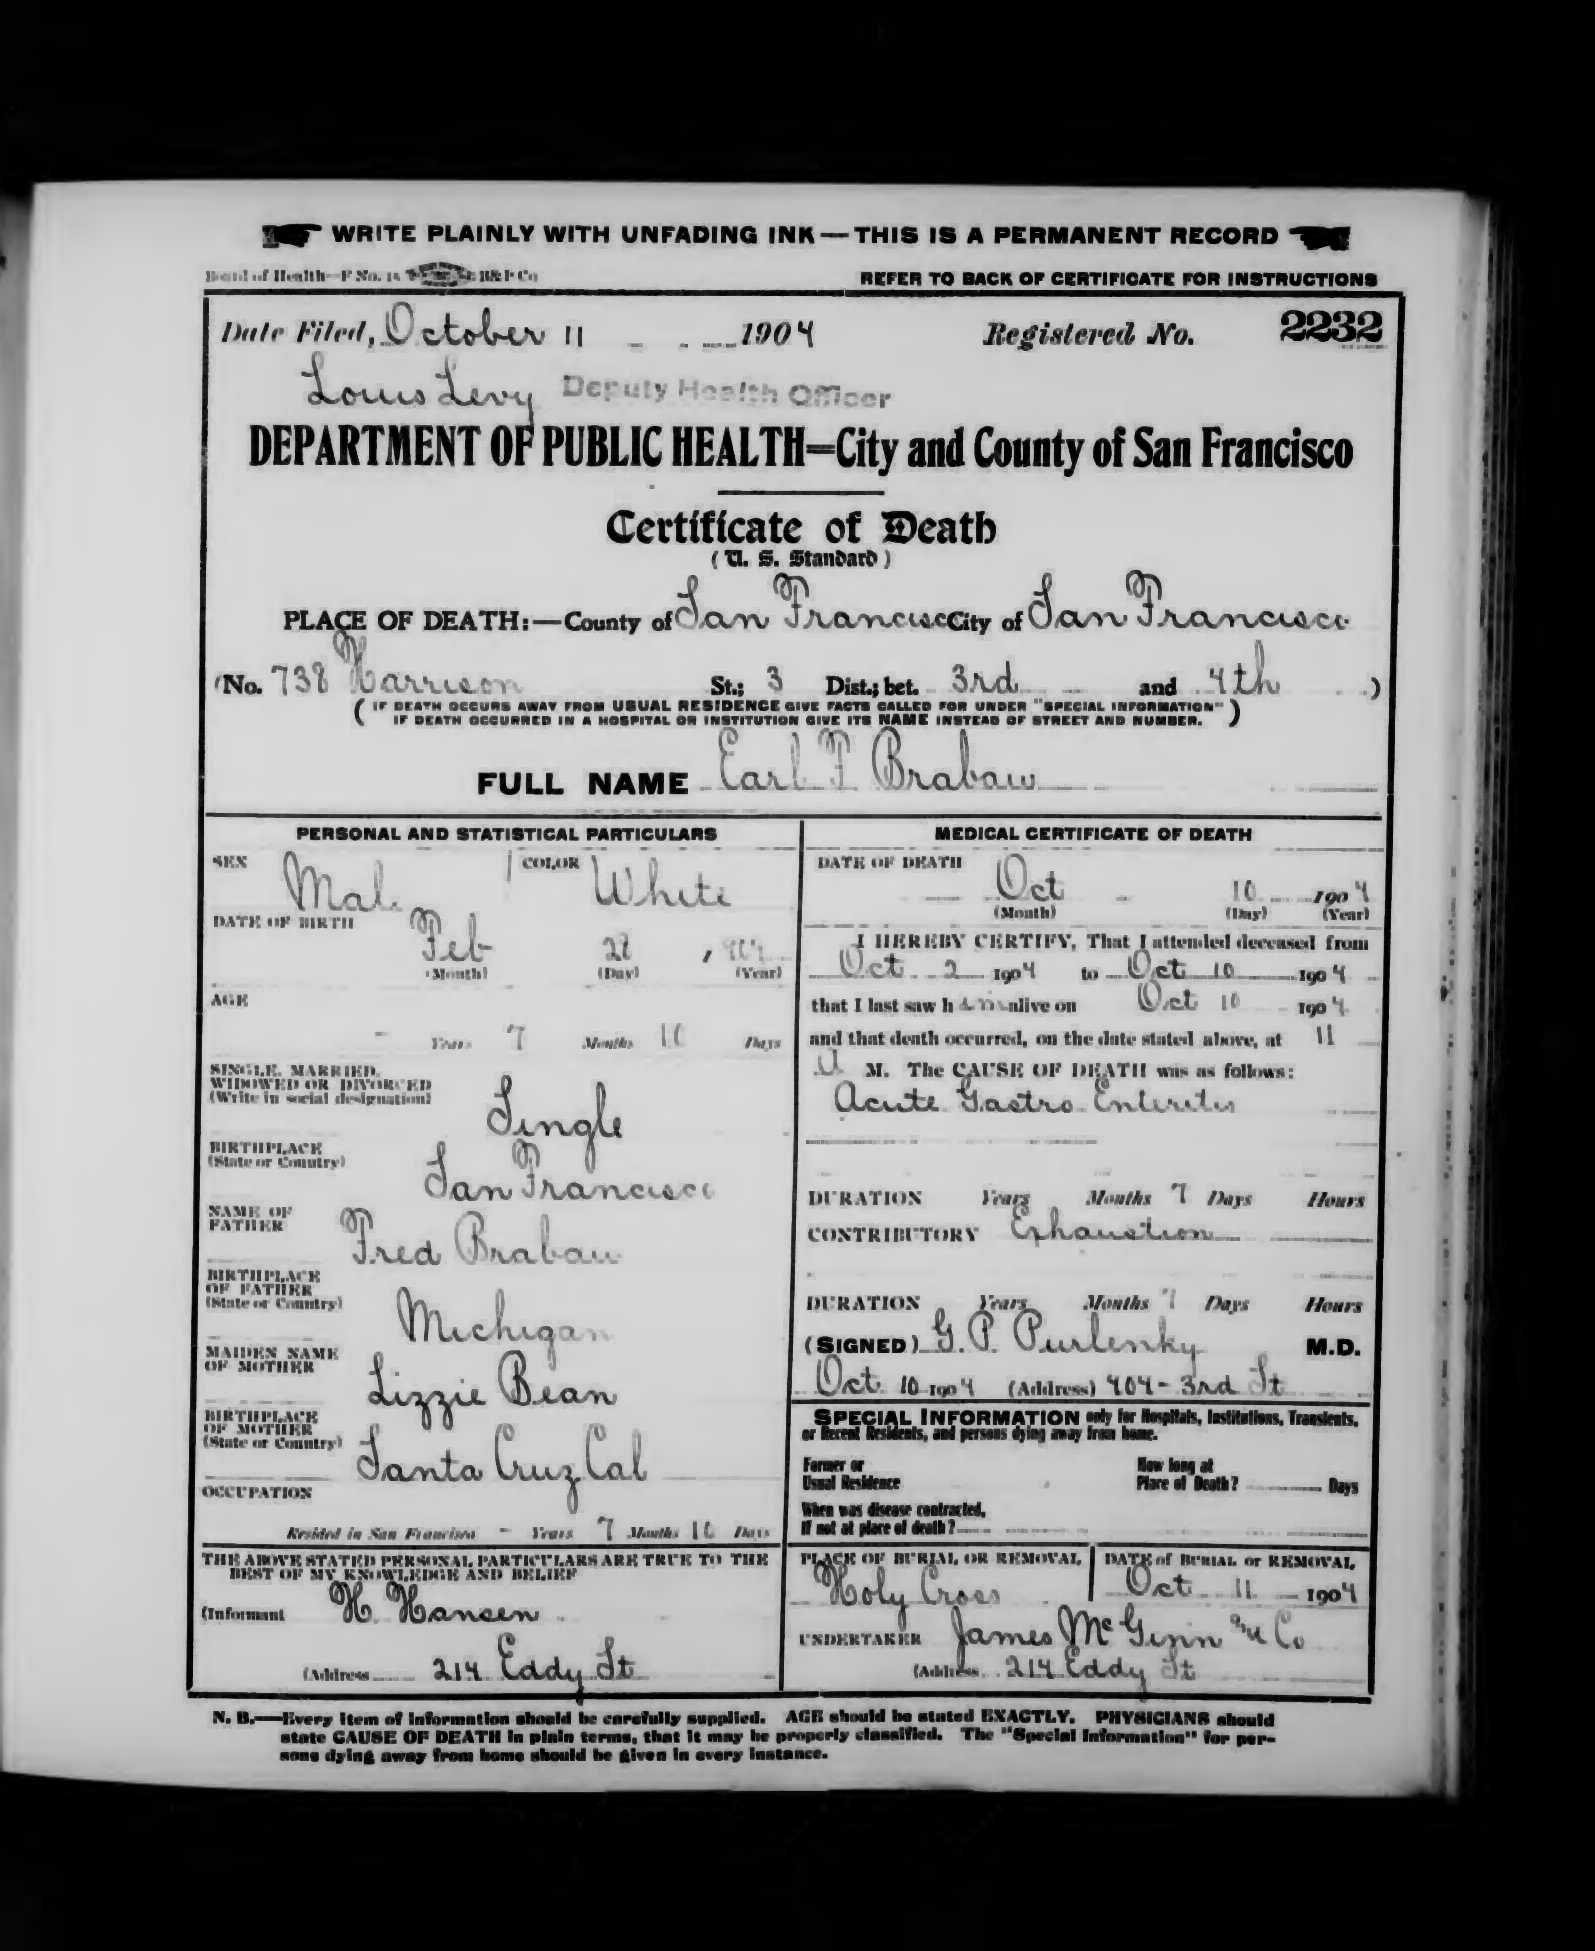 WRITE PLAINLY WITH UNFADING INK—THIS IS A PERMANENT RECORD
Board of Health—F No. 15 B&P Co
REFER TO BACK OF CERTIFICATE FOR INSTRUCTIONS
Date Filed, October 11 1904 Registered No. 2232
Louis Levy Deputy Health Officer
DEPARTMENT OF PUBLIC HEALTH=City and County of San Francisco
Certificate of Death
(U. S. Standard)
PLACE OF DEATH:—County of San Francisco City of San Francisco
(No. 738 Harrison St.; 3 Dist.; bet. 3rd and 4th )
( IF DEATH OCCURS AWAY FROM USUAL RESIDENCE GIVE FACTS CALLED FOR UNDER "SPECIAL INFORMATION"
IF DEATH OCCURRED IN A HOSPITAL OR INSTITUTION GIVE ITS NAME INSTEAD OF STREET AND NUMBER. )
FULL NAME Earl F Brabaw
PERSONAL AND STATISTICAL PARTICULARS
SEX Male COLOR White
DATE OF BIRTH
Feb 28, 1904
(Month) (Day) (Year)
AGE
- Years 7 Months Days
SINGLE, MARRIED,
WIDOWED OR DIVORCED
(Write in social designation)
Single
BIRTHPLACE
(State or Country)
San Francisco
NAME OF
FATHER
Fred Brabaw
BIRTHPLACE
OF FATHER
(State or Country)
Michigan
MAIDEN NAME
OF MOTHER
Lizzie Bean
BIRTHPLACE
OF MOTHER
(State or Country)
Santa Cruz Cal
OCCUPATION
Resided in San Francisco - Years 7 Months Days
THE ABOVE STATED PERSONAL PARTICULARS ARE TRUE TO THE
BEST OF MY KNOWLEDGE AND BELIEF
(Informant H. Hansen
(Address 214 Eddy St
MEDICAL CERTIFICATE OF DEATH
DATE OF DEATH
Oct 10 1904
(Month) (Day) (Year)
I HEREBY CERTIFY, That I attended deceased from
Oct 2 1904 to Oct 10 1904
that I last saw h im alive on Oct 10 1904
and that death occurred, on the date stated above, at 11
M. The CAUSE OF DEATH was as follows:
Acute Gastro Enteritis
DURATION Years Months 7 Days Hours
CONTRIBUTORY Exhaustion
DURATION Years Months Days Hours
(SIGNED) G. P. Purlenky M.D.
Oct 10 1904 (Address) 404- 3rd St
SPECIAL INFORMATION only for Hospitals, Institutions, Transients,
or Recent Residents, and persons dying away from home.
Former or
Usual Residence
How long at
Place of Death? Days
When was disease contracted,
If not at place of death?
PLACE OF BURIAL OR REMOVAL
Holy Cross
DATE of BURIAL or REMOVAL
Oct 11 1904
UNDERTAKER James McGinn & Co
(Address 214 Eddy St
N. B.—Every item of information should be carefully supplied. AGE should be stated EXACTLY. PHYSICIANS should
state CAUSE OF DEATH in plain terms, that it may be properly classified. The "Special Information" for per-
sons dying away from home should be given in every instance.